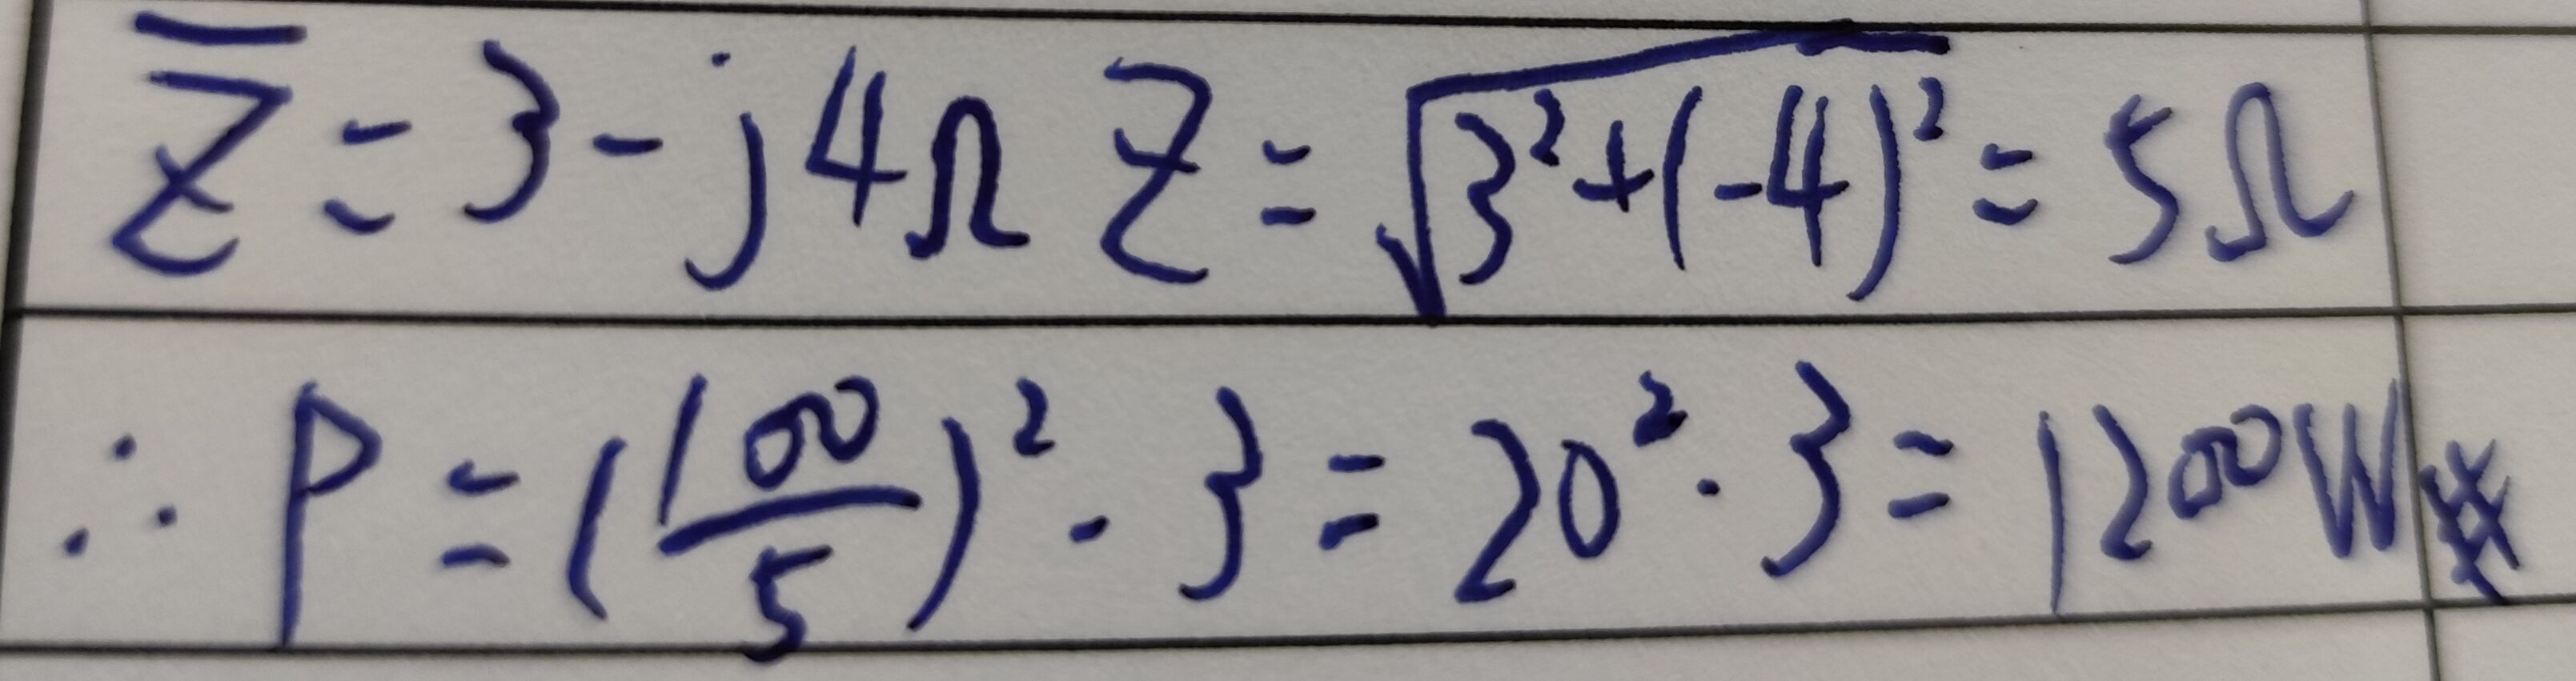 Z̅ = 3 - j4Ω Z = √(3² + (-4)²) = 5Ω
∴ P = (100/5)² · 3 = 20² · 3 = 1200W #